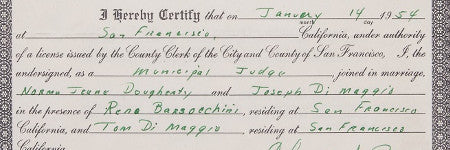 I Hereby Certify that on January 14 1954
month day
at San Francisco, California, under authority
of a license issued by the County Clerk of the City and County of San Francisco, I, the
undersigned, as a Municipal Judge joined in marriage,
Norma Jeane Dougherty and Joseph Di Maggio
in the presence of Reno Barsocchini, residing at San Francisco
California, and Tom Di Maggio, residing at San Francisco
California.